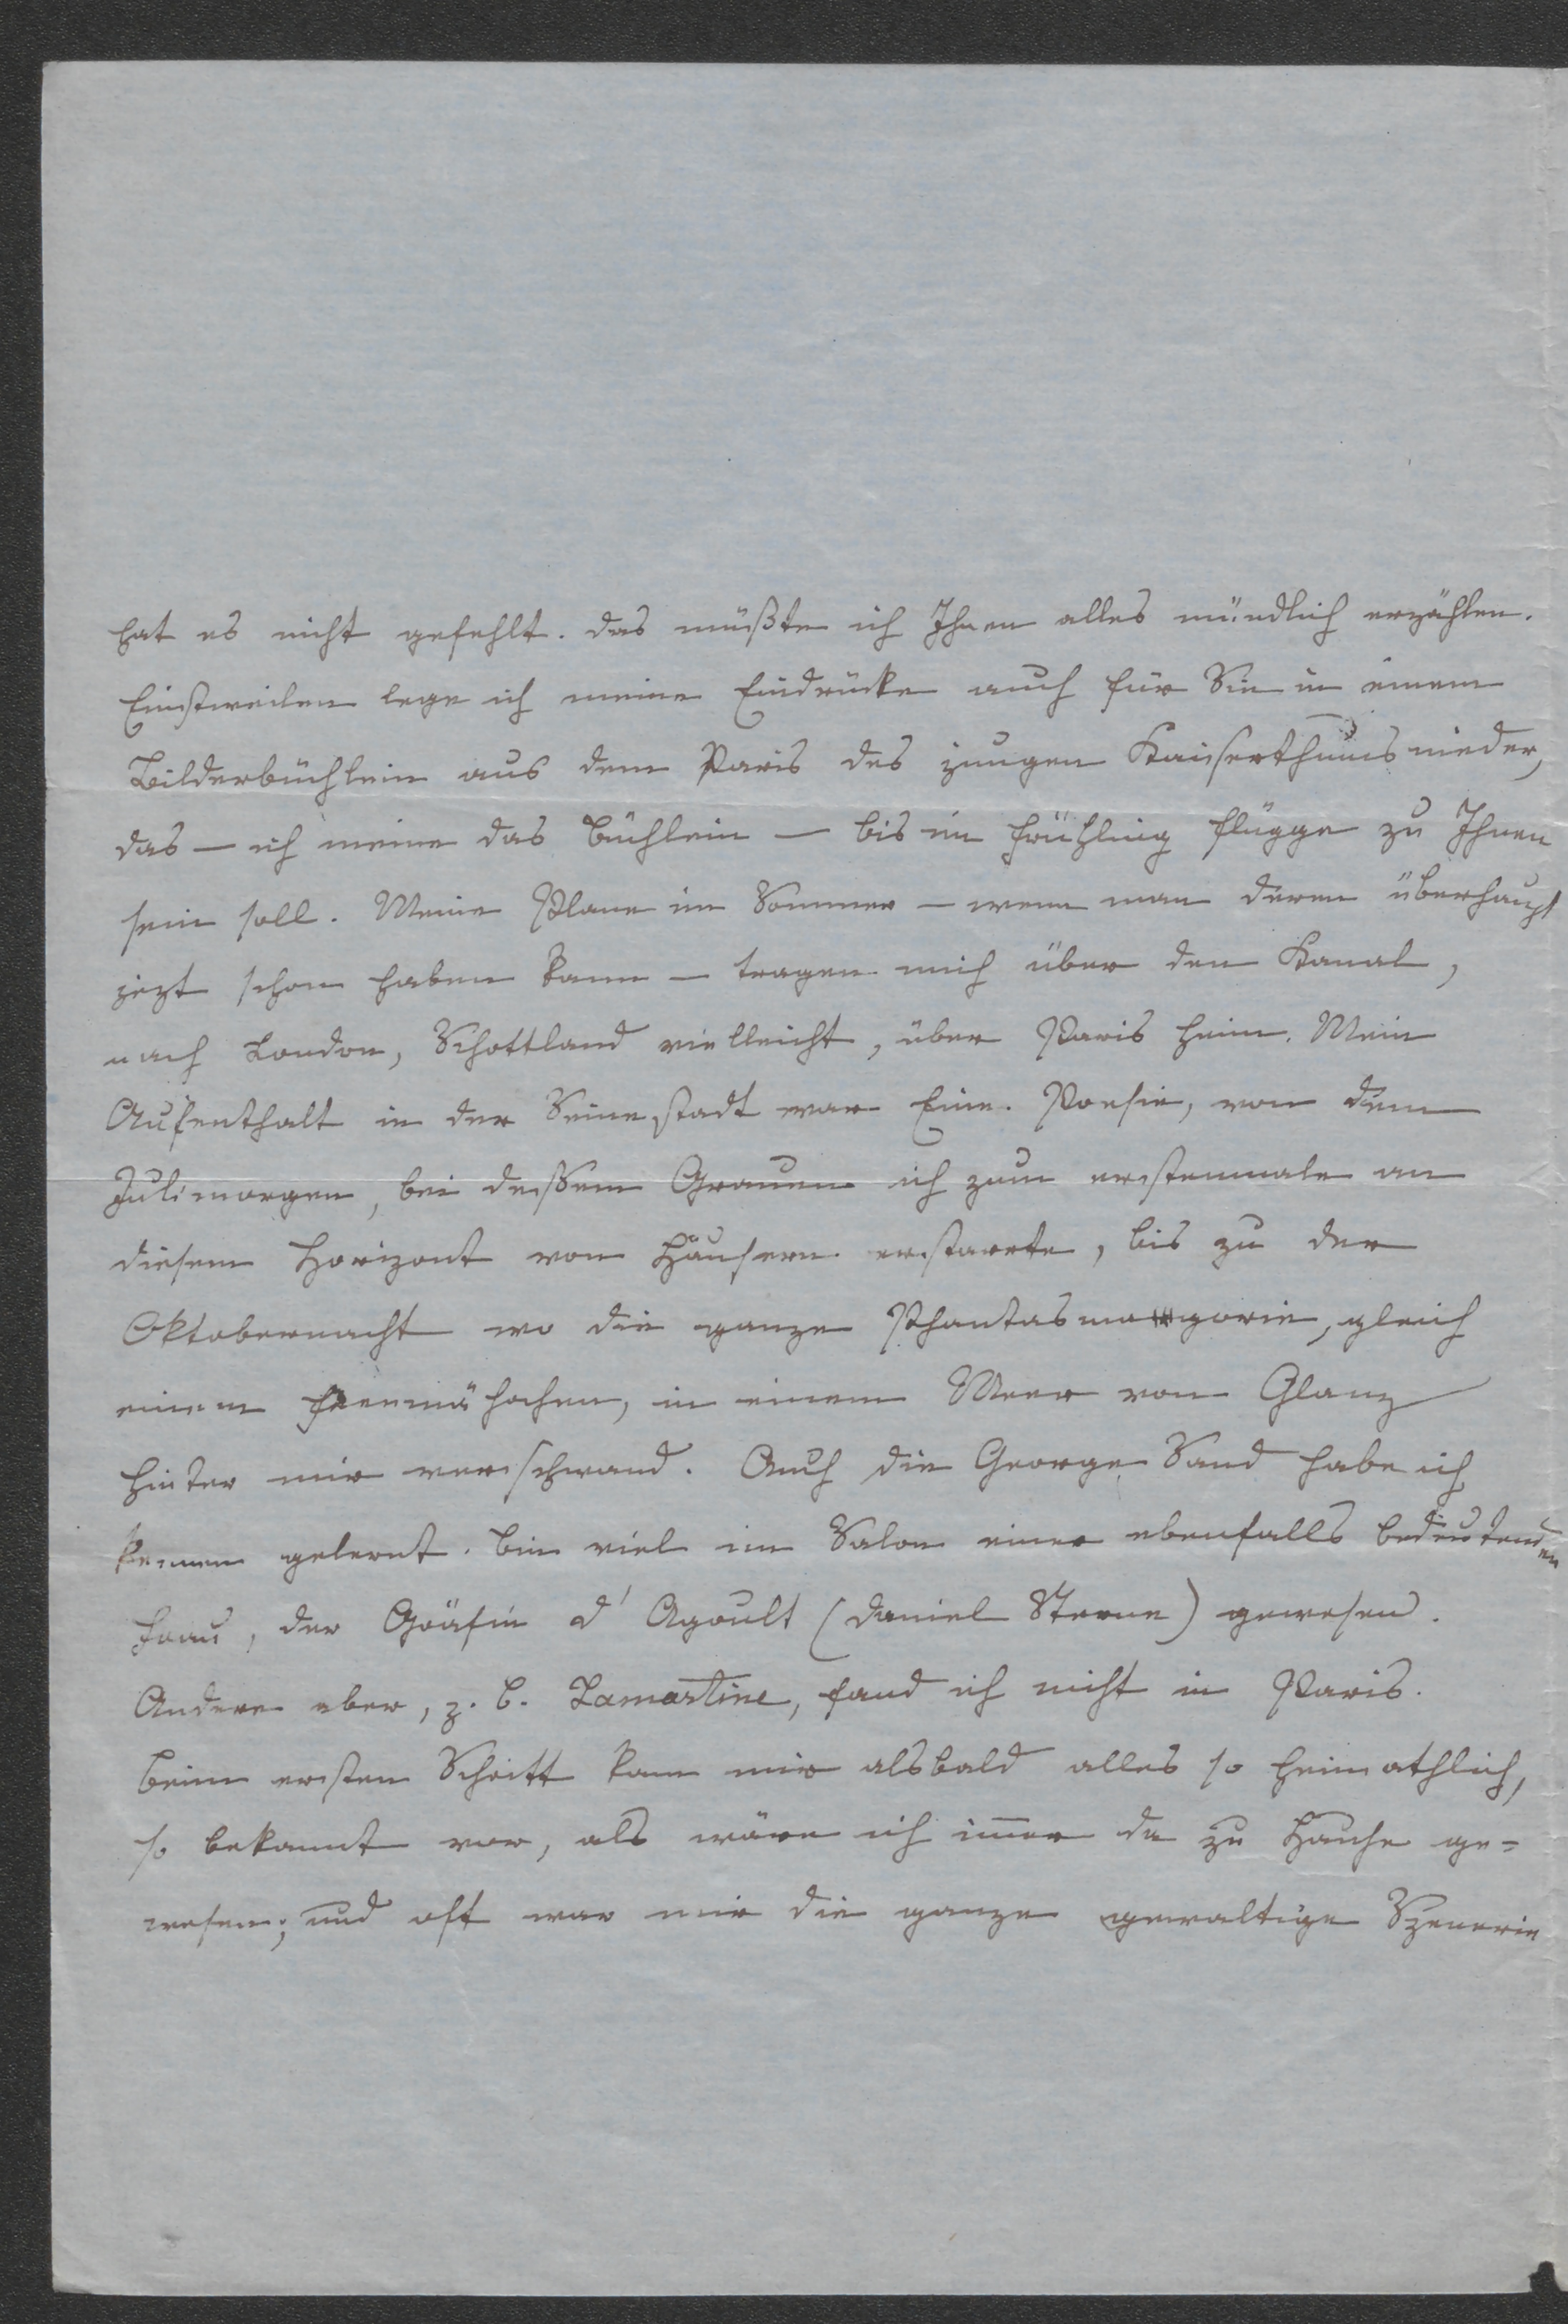 hat es nicht gefehlt. Das müßte ich Ihnen alles mündlich erzählen.
Einstweilen lege ich meine Eindrücke auch für Sie in einem
Bilderbüchlein aus dem Paris des jungen Kaiserthums nieder,
das — ich meine das Büchlein — bis im Frühling flügge zu Ihnen
sein soll. Meine Plane im Sommer — wenn man deren überhaupt
jezt schon haben kann — tragen mich über den Kanal,
nach London, Schottland vielleicht, über Paris heim. Mein
Aufenthalt in der Seinestadt war Eine Poesie, von dem
Julimorgen, bei dessen Grauen ich zum erstenmale an
diesem Horizont von Häusern erstarrte, bis zu der
Oktobernacht wo die ganze Phantasmagorie, gleich
einem Feenmährchen, in einem Meer von Glanz
hinter mir verschwand. Auch die George Sand habe ich
kennen gelernt. bin viel im Salon einer ebenfalls bedeutenden
Frau, der Gräfin d'Agoult (Daniel Sterne) gewesen.
Andere aber, z. B. Lamartine, fand ich nicht in Paris.
Beim ersten Schritt kam mir alsbald alles so heimathlich,
so bekannt vor, als wäre ich immer da zu Hause ge=
wesen; und oft war mir die ganze gewaltige Szenerie